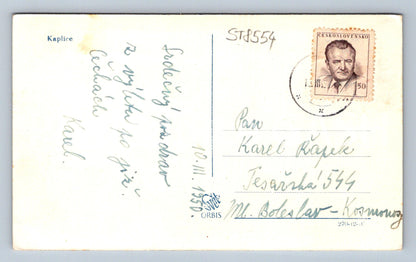 Kaplice
ST8554
ČESKOSLOVENSKO
50
Srdečný pozdrav
z výletu po již.
Čechách
Karel.
10. III. 1950.
ORBIS
Pan
Karel Řapek
Tesařská 544
Ml. Boleslav - Kosmonosy